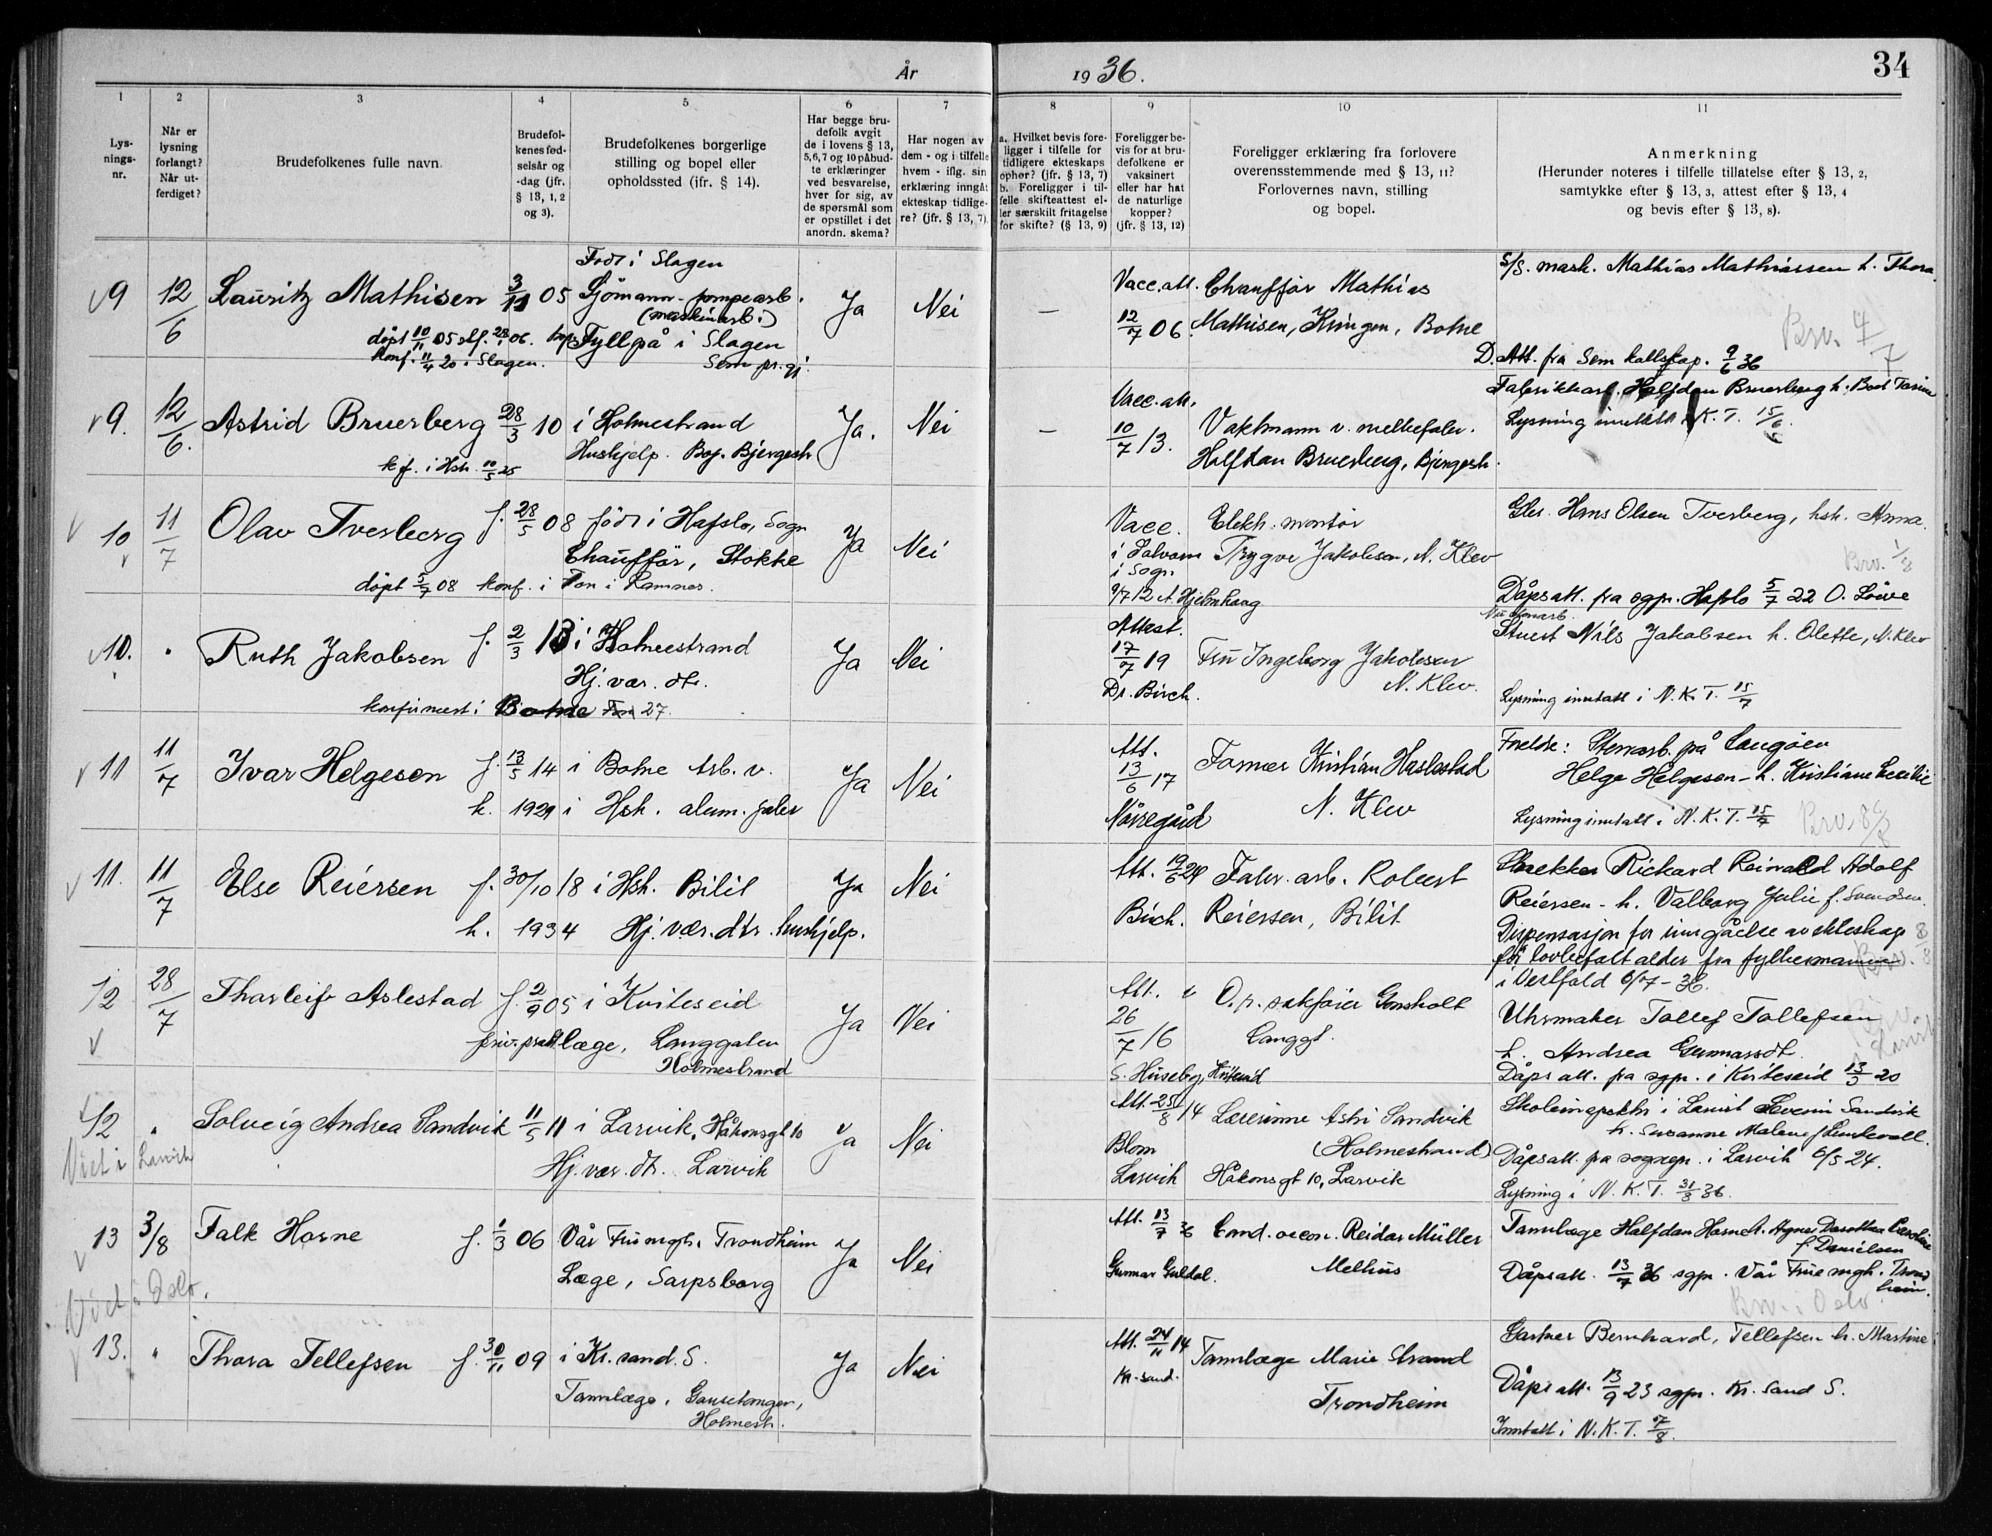 År 1936.
34
1 2 3 4 5 6 7 8 9 10 11
Lys-
nings-
nr.
Når er
lysning
forlangt?
Når ut-
ferdiget?
Brudefolkenes fulle navn.
Brudefol-
kenes fød-
selsår og
-dag (jfr.
§ 13, 1, 2
og 3).
Brudefolkenes borgerlige
stilling og bopel eller
opholdssted (jfr. § 14).
Har begge bru-
defolk avgit
de i lovens § 13,
5, 6, 7 og 10 påbud-
te erklæringer
ved besvarelse,
hver for sig, av
de spørsmål som
er opstillet i det
anordn. skema?
Har nogen av
dem - og i tilfelle
hvem - iflg. sin
erklæring inngåt
ekteskap tidlige-
re? (jfr. § 13, 7).
a. Hvilket bevis fore-
ligger i tilfelle for
tidligere ekteskaps
ophør? (jfr. § 13, 7)
b. Foreligger i til-
felle skifteattest el-
ler særskilt fritagelse
for skifte? (§ 13, 9)
Foreligger be-
vis for at bru-
defolkene er
vaksinert
eller har hat
de naturlige
kopper?
(jfr. § 13, 12)
Foreligger erklæring fra forlovere
overensstemmende med § 13, 11?
Forlovernes navn, stilling
og bopel.
Anmerkning
(Herunder noteres i tilfelle tillatelse efter § 13, 2,
samtykke efter § 13, 3, attest efter § 13, 4
og bevis efter § 13, 8).
Født i Slagen
9 12/6 Lauritz Mathisen 3/11 05 Sjömann - pompearb.
(maskinarb.)
Ja Nei —
døpt 10/11 05 konf. 11/4 20 i Slagen.
Fyllpå i Slagen
Sem pr.gj.
Vacc. att. 12/7 06.
Chauffør Mathias
Mathisen, Kringen, Botne
S/S. mask. Mathias Mathiassen h. Thora
Brv. 4/7
D. Att. fra Sem kallskap. 9/6 36
9. 12/6. Astrid Bruerberg 28/3 10 i Holmestrand
Hushjelp. Bop. Bjergesh
Ja. Nei —
kf. i Hsh. 10/5 25
Vacc. att. 10/7 13.
Vaktmann v. melkefabr.
Halfdan Bruerberg, Bjergesh.
Fabrikkarb. Halfdan Bruerberg h.
Lysning inntatt N.K.T. 15/6
10 11/7 Olav Tverberg f. 28/5 08 født i Hafslo, Sogn
Chauffør, Stokke
Ja Nei
døpt 5/7 08 konf. i Fon i Ramnes.
Vacc.
i Solvorn
i Sogn
9/7 12 A. Hjelmhaug
Elektr. montør
Trygve Jakobsen, N. Klev
Hans Olsen Tverberg, h. Anna.
Brv. 1/8
Dåpsatt. fra sgpr. Hafslo 5/7 22 O. Löive
10. " Ruth Jakobsen f. 2/3 13 i Holmestrand
Hj. vær. dtr.
Ja Nei
konfirmert i Botne 27.
Attest.
17/7 19
Dr. Birch.
Fru Ingeborg Jakobsen
N. Klev.
Stuert Nils Jakobsen h. Olette, N. Klev
Lysning inntatt i N.K.T. 15/7
11 11/7 Ivar Helgesen f. 13/5 14 i Botne Arb. v.
k. 1929 i Hsh. alum. fabr
Ja Nei
Att.
13/6 17
Nörregård
Formær Kristian Haslestad
N. Klev
Foreldre: Stenarb. på Langöen
Helge Helgesen - h. Kristiane Cecilie
Lysning inntatt i N.K.T. 15/7
Brv. 8/8
11. 11/7 Else Reiersen f. 30/10 18 i Hsh. Bilit
k. 1934 Hj. vær. dtr. hushjelp.
Ja Nei
Att. 19/6 24
Birch.
Fabr. arb. Robert
Reiersen, Bilit
Slækker Rickard Reinvald Adolf
Reiersen - h. Valborg Julie f. Svendsen.
Dispensasjon for inngåelse av ekteskap
før lovbefalt alder fra fylkesmannen
i Vestfold 6/7 - 36.
Brv. 8/8
12 28/7 Tharleif Aslestad f. 2/9 05 i Kviteseid
priv. prakt. læge, Langgaten
Holmestrand
Ja Nei
Att.
26/7 16
S. Huseby, Kviteseid
O.r. sakfører Gonsholt
Langgt.
Uhrmaker Tollef Tollefsen
h. Andrea Gunnarsdt.
Dåpsatt. fra sgpr. i Kviteseid 13/3 20
12 " Solveig Andrea Sandvik 11/5 11 i Larvik, Håkonsgt 10
Hj. vær. dt. Larvik
Ja Nei
Viet i Larvik
Att. 25/8 14
Blom
Larvik
Lærerinne Astri Sandvik
(Holmestrand)
Håkonsgt 10, Larvik
Skoleinspektør i Larvik Severin Sandvik
h. Susanne Malene f. Lundevall.
Dåpsatt. fra sognepr. i Larvik 6/5 24.
Lysning i N.K.T. 31/3 36.
13 3/8 Falk Horne f. 1/3 06 Vår Fruemgh. Trondheim
Læge, Sarpsborg
Ja Nei
Viet i Oslo.
Att. 13/7 36
Gunnar Guldal.
Cand. oecon. Reidar Müller
Melhus
Tannlæge Halfdan Horne h. Agnes Dorothea Caroline
f. Danielsen
Dåpsatt. 13/7 36 sgpr. Vår Frue mgh. Trond
heim.
Brv. i Oslo.
13. " Thora Tellefsen f. 30/11 09 i Kr.sand. S.
Tannlæge, Gausetangen,
Holmestr.
Ja Nei
Att. 24/11 14
Kr. sand.
Tannlæge Marie Strand
Trondheim
Gartner Bernhard Tellefsen h. Martine
Dåpsatt. 13/9 23 sgpr. Kr. Sand S.
Inntatt i N.K.T. 7/8.